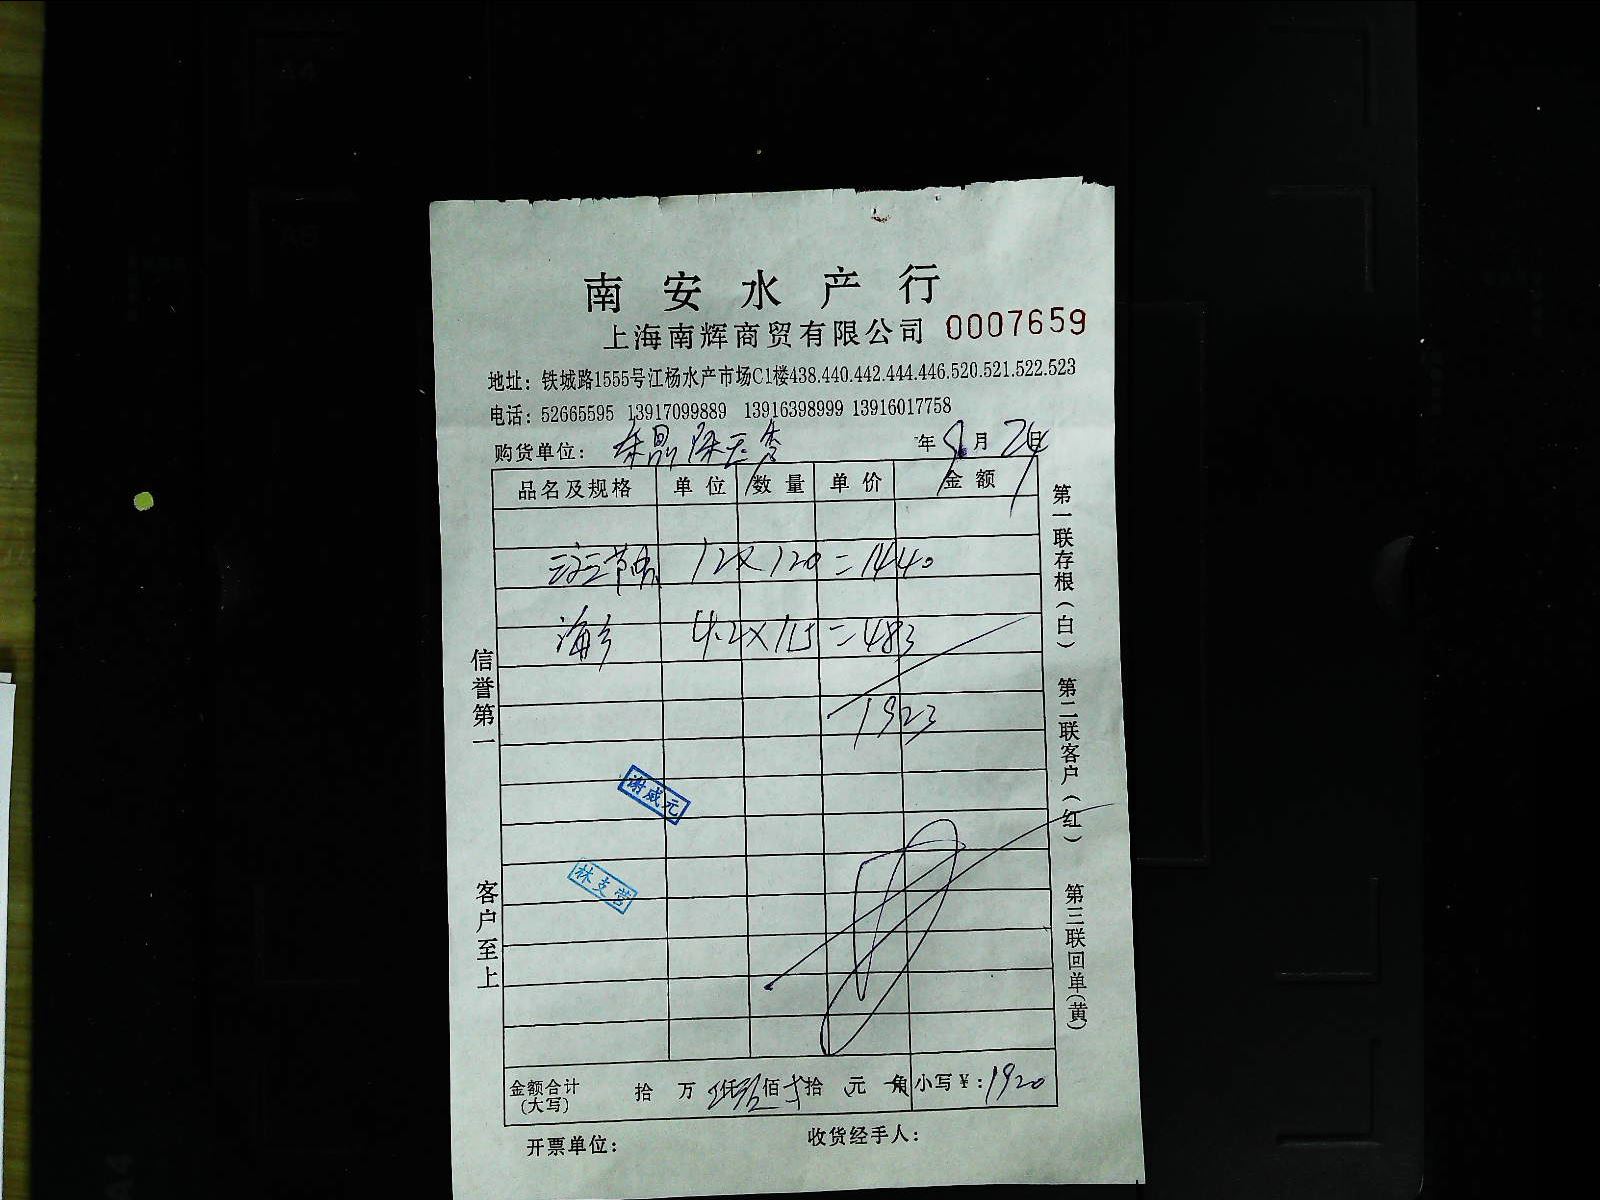 南安水产行
上海南辉商贸有限公司 0007659
地址：铁城路1555号江杨水产市场C1楼438.440.442.444.446.520.521.522.523
电话：52665595 13917099889 13916398999 13916017758
购货单位： 年 9月24日
品名及规格 单位 数量 单价 金额
12×120=1440
海 4.2×115=483
1923
谢咸元
林支营
金额合计(大写) 拾 万 仟 佰 拾 元 角 小写￥：1920
开票单位： 收货经手人：
信誉第一 客户至上
第一联存根（白） 第二联客户（红） 第三联回单（黄）